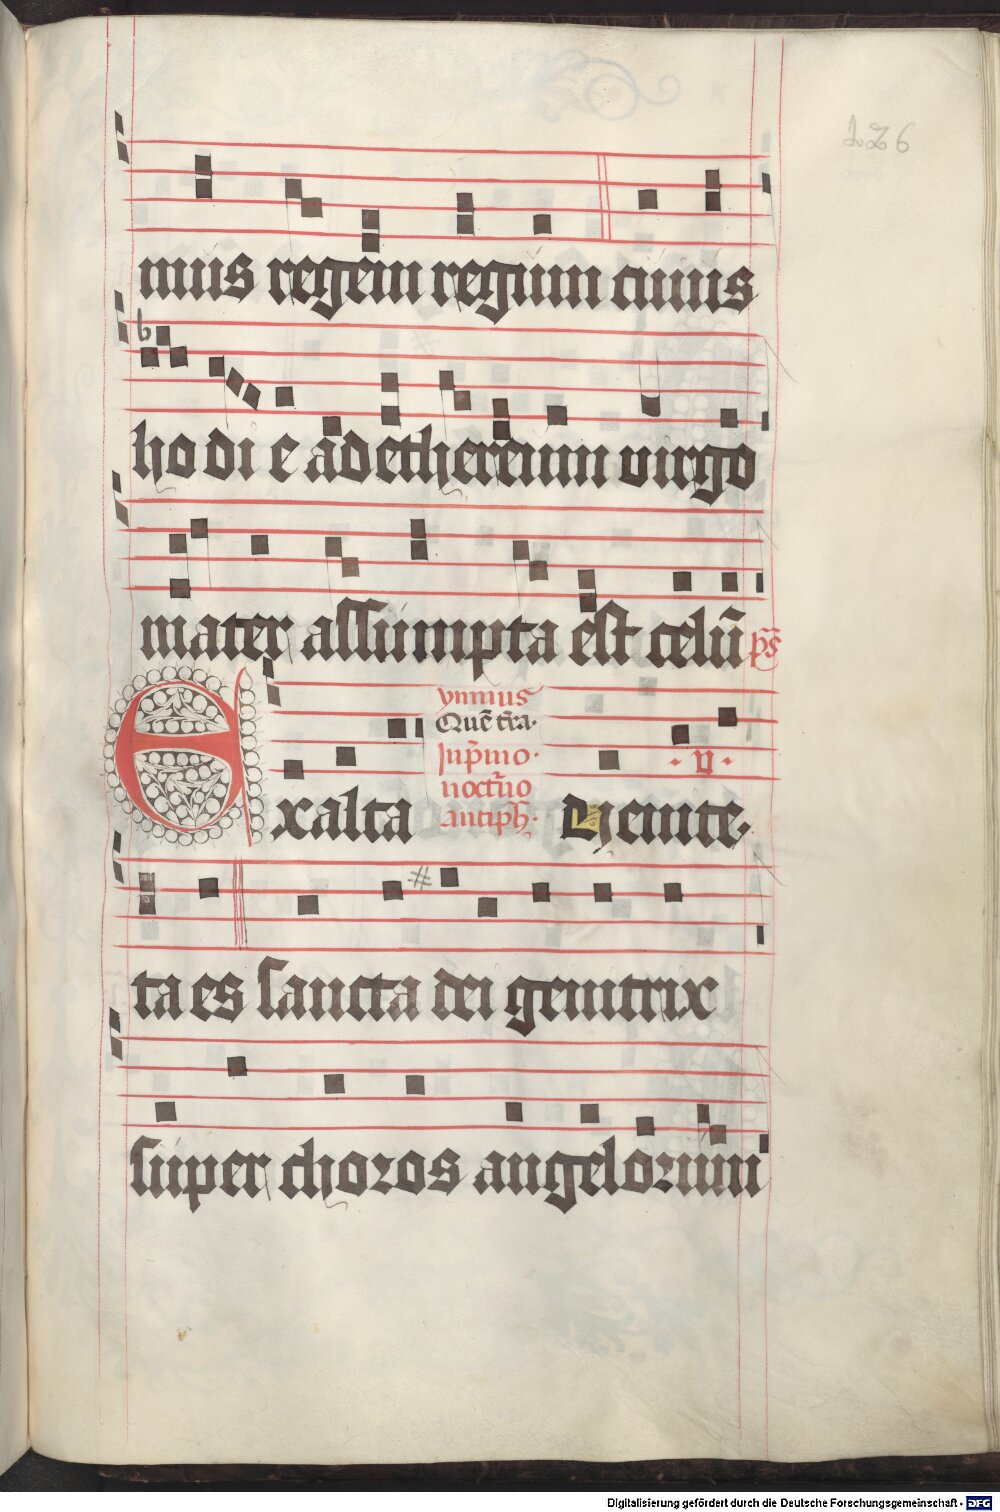 226
mus regem regum cuius
hodie ad ethereum virgo
mater assumpta est celū p̄s
ymnus
Quē t̄ra.
In p̄mo.
noct̄no
antiph.
. v .
Exalta Venite.
ta es sancta dei genitrix
super choros angelorum
Digitalisierung gefördert durch die Deutsche Forschungsgemeinschaft - DFG